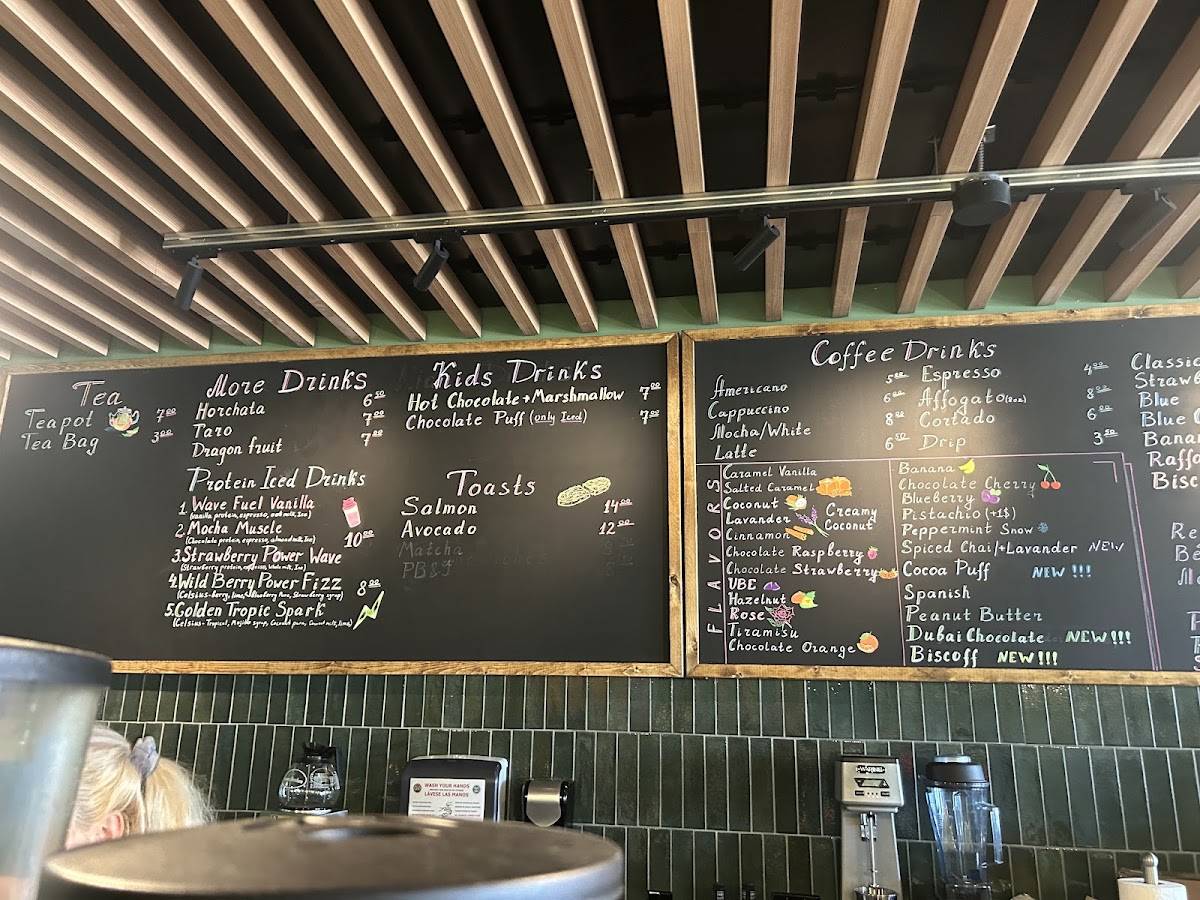 Tea
Teapot 7.00
Tea Bag 3.00
More Drinks
Horchata 6.50
Taro 7.00
Dragon fruit 7.00
Protein Iced Drinks
1. Wave Fuel Vanilla
(Vanilla protein, espresso, oat milk, Ice)
2. Mocha Muscle 10.00
(Chocolate protein, espresso, almond milk, Ice)
3. Strawberry Power Wave
(Strawberry protein, espresso, Whole milk, Ice)
4. Wild Berry Power Fizz 8.00
(Celsius-berry, lime, Blueberry Pure, Strawberry syrup)
5. Golden Tropic Spark
(Celsius-Tropical, Mojito syrup, Coconut pure, Coconut milk, lime)
Kids Drinks
Hot Chocolate + Marshmallow 7.00
Chocolate Puff (only Iced) 7.00
Toasts
Salmon 14.00
Avocado 12.00
Matcha
PB&J
Coffee Drinks
Americano 5.00
Cappuccino 6.00
Mocha/White 8.00
Latte 6.50
Espresso 4.00
Affogato 8.00
Cortado 6.00
Drip 3.50
FLAVORS
Caramel Vanilla
Salted Caramel
Coconut
Lavander
Creamy
Coconut
Cinnamon
Chocolate Raspberry
Chocolate Strawberry
UBE
Hazelnut
Rose
Tiramisu
Chocolate Orange
Banana
Chocolate Cherry
Blueberry
Pistachio (+1$)
Peppermint Snow
Spiced Chai/+Lavander NEW
Cocoa Puff NEW !!!
Spanish
Peanut Butter
Dubai Chocolate NEW !!!
Biscoff NEW !!!
Classic
Strawb
Blue
Blue C
Banan
Raffa
Bisc
Re
WASH YOUR HANDS
LAVESE LAS MANOS
WARING